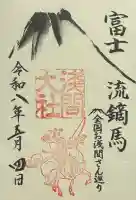 富士
流鏑馬
全国お浅間さん巡り
淺間大社
令和八年五月四日